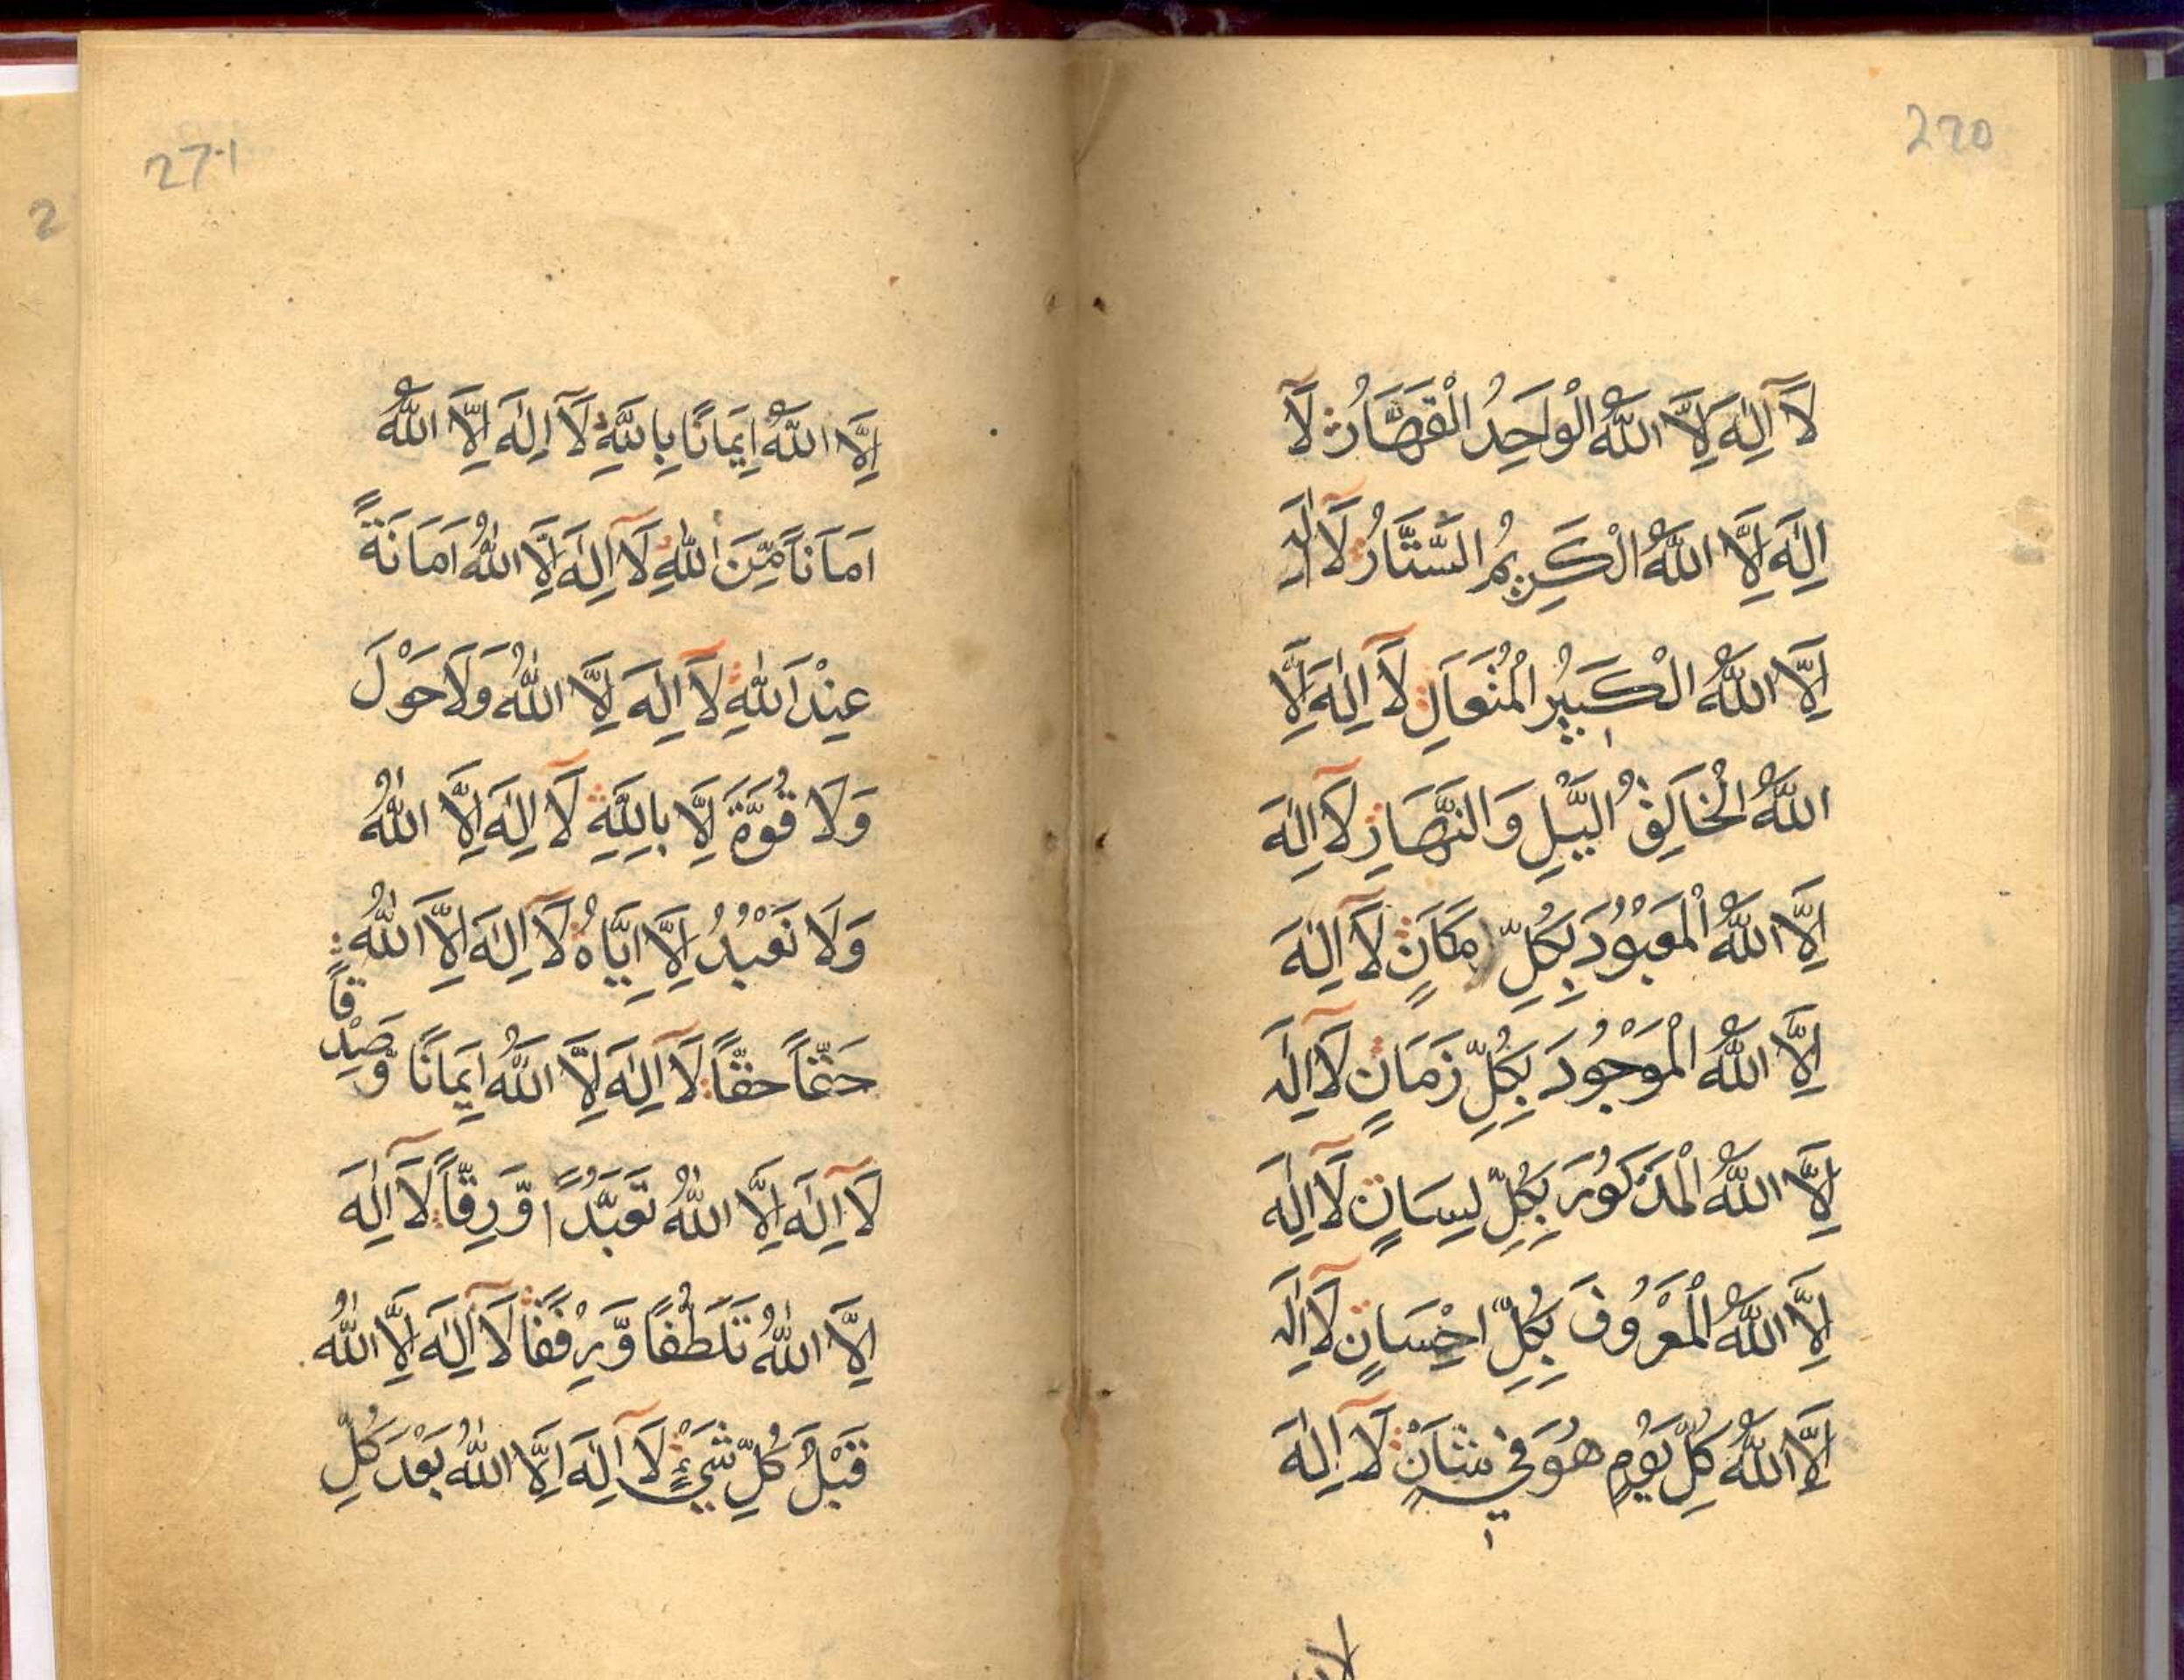 220
لَآ اِلٰهَ اِلَّا اللّٰهُ الْوَاحِدُ الْقَهَّارُ لَآ
اِلٰهَ اِلَّا اللّٰهُ الْكَرِيْمُ السَّتَّارُ لَآ اِلٰهَ
اِلَّا اللّٰهُ الْكَبِيْرُ الْمُتَعَالِ لَآ اِلٰهَ اِلَّا
اللّٰهُ الْخَالِقُ الَّيْلِ وَالنَّهَارِ لَآ اِلٰهَ
اِلَّا اللّٰهُ الْمَعْبُوْدَ بِكُلِّ مَكَانٍ لَآ اِلٰهَ
اِلَّا اللّٰهُ الْمَوْجُوْدَ بِكُلِّ زَمَانٍ لَآ اِلٰهَ
اِلَّا اللّٰهُ الْمَذْكُوْرَ بِكُلِّ لِسَانٍ لَآ اِلٰهَ
اِلَّا اللّٰهُ الْمَعْرُوْفَ بِكُلِّ اِحْسَانٍ لَآ اِلٰهَ
اِلَّا اللّٰهُ كُلِّ يَوْمٍ هُوَ فِيْ شَاْنٍ لَآ اِلٰهَ
271
اِلَّا اللّٰهُ اِيْمَانًا بِاللّٰهِ لَآ اِلٰهَ اِلَّا اللّٰهُ
اَمَانًا مِّنَ اللّٰهِ لَآ اِلٰهَ اِلَّا اللّٰهُ اَمَانَةً
عِنْدَ اللّٰهِ لَآ اِلٰهَ اِلَّا اللّٰهُ وَلَا حَوْلَ
وَلَا قُوَّةَ اِلَّا بِاللّٰهِ لَآ اِلٰهَ اِلَّا اللّٰهُ
وَلَا نَعْبُدُ اِلَّا اِيَّاهُ لَآ اِلٰهَ اِلَّا اللّٰهُ
حَقّاً حَقّاً لَآ اِلٰهَ اِلَّا اللّٰهُ اِيْمَانًا وَّصِدْقاً
لَآ اِلٰهَ اِلَّا اللّٰهُ تَعَبُّدًا وَّرِقّاً لَآ اِلٰهَ
اِلَّا اللّٰهُ تَلَطُّفًا وَّرِفْقًا لَآ اِلٰهَ اِلَّا اللّٰهُ
قَبْلَ كُلِّ شَيْءٍ لَآ اِلٰهَ اِلَّا اللّٰهُ بَعْدَ كُلِّ